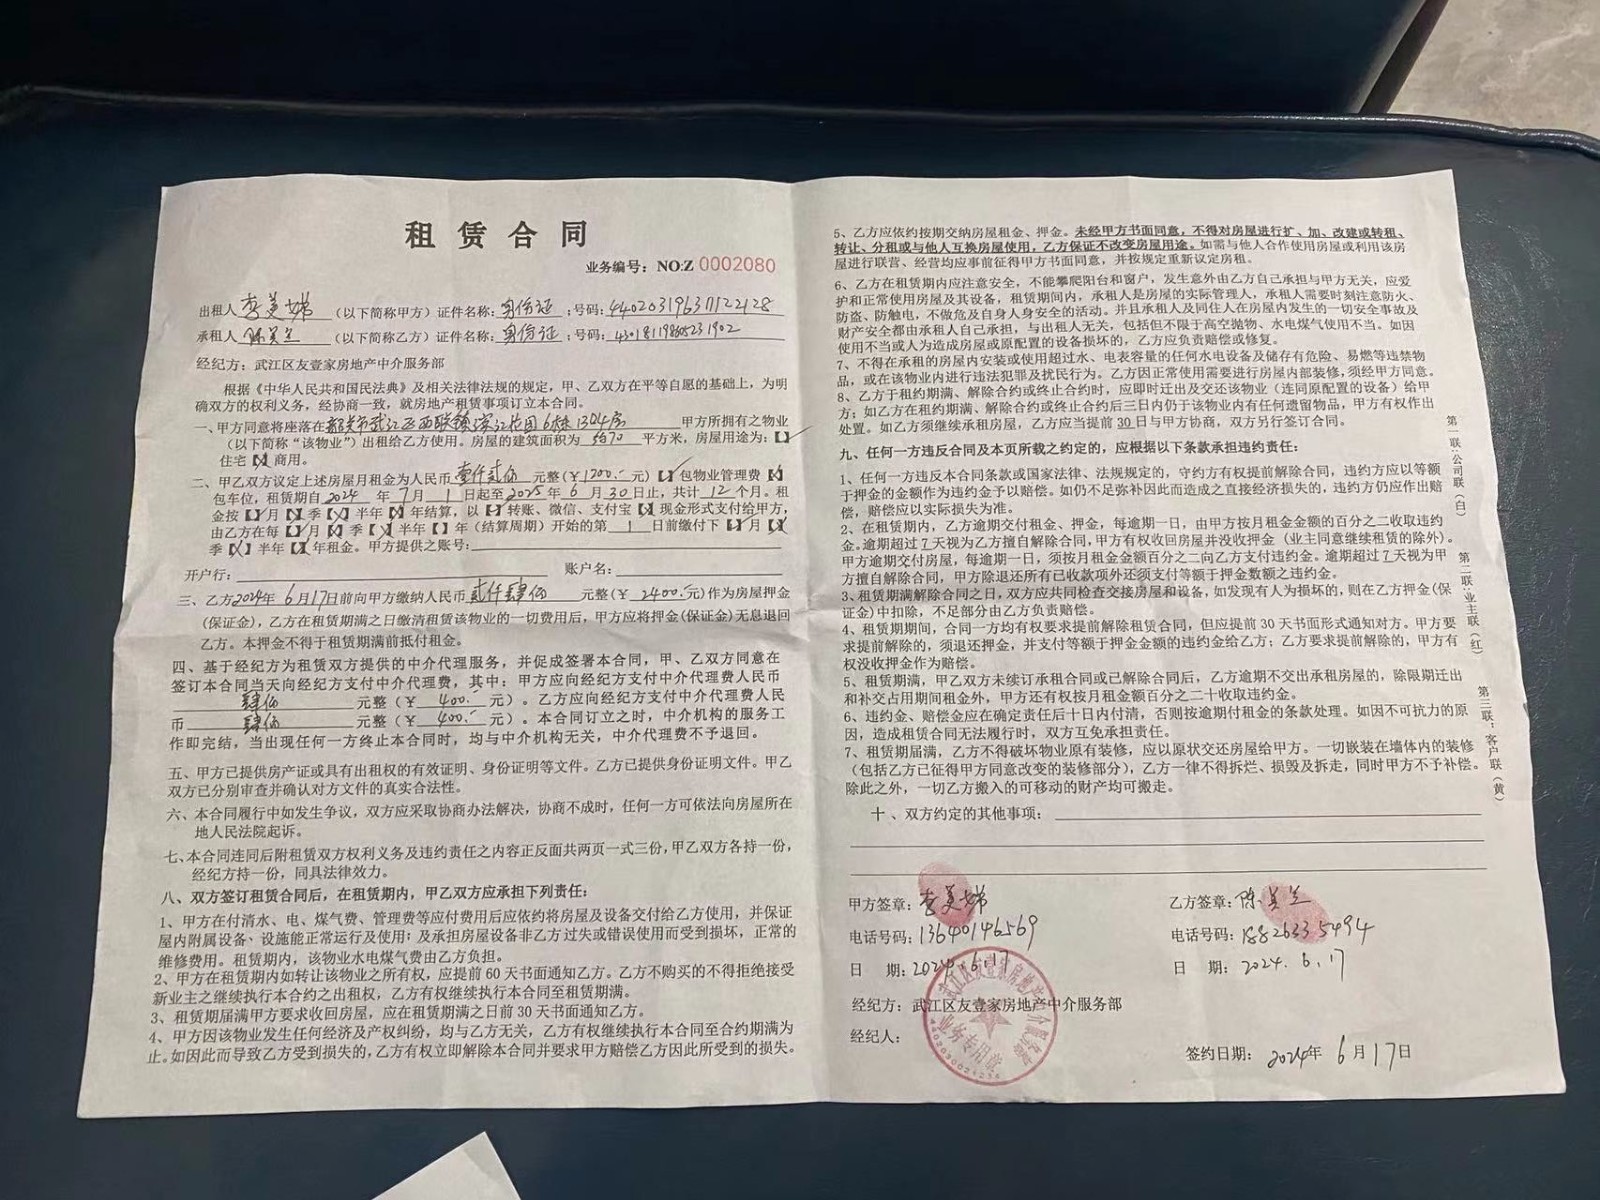 租赁合同
业务编号：NO:Z 0002080
出租人 李美娣 （以下简称甲方）证件名称：身份证 ；号码：440203196311222128
承租人 陈美兰 （以下简称乙方）证件名称：身份证 ；号码：
经纪方：武江区友壹家房地产中介服务部
根据《中华人民共和国民法典》及相关法律法规的规定，甲、乙双方在平等自愿的基础上，为明
确双方的权利义务，经协商一致，就房地产租赁事项订立本合同。
一、甲方同意将座落在韶关市武江区西联镇滨江花园6栋1304房 甲方所拥有之物业
（以下简称“该物业”）出租给乙方使用。房屋的建筑面积为 约70 平方米，房屋用途为：【 】
住宅【X】商用。
二、甲乙双方议定上述房屋月租金为人民币 壹仟贰佰 元整（¥ 1200.- 元）【 】包物业管理费【 】
包车位，租赁期自 2024 年 7 月 1 日起至 2025 年 6 月 30 日止，共计 12 个月。租
金按【 】月【X】季【X】半年【X】年结算，以【 】转账、微信、支付宝【X】现金形式支付给甲方，
由乙方在每【 】月【X】季【X】半年【X】年（结算周期）开始的第 1 日前缴付下【 】月【X】
季【X】半年【X】年租金。甲方提供之账号：
开户行： 账户名：
三、乙方 2024年 6月17日前向甲方缴纳人民币 贰仟肆佰 元整（¥ 2400. 元）作为房屋押金
（保证金），乙方在租赁期满之日缴清租赁该物业的一切费用后，甲方应将押金(保证金)无息退回
乙方。本押金不得于租赁期满前抵付租金。
四、基于经纪方为租赁双方提供的中介代理服务，并促成签署本合同，甲、乙双方同意在
签订本合同当天向经纪方支付中介代理费，其中：甲方应向经纪方支付中介代理费人民币
肆佰 元整（¥ 400.- 元）。乙方应向经纪方支付中介代理费人民
币 肆佰 元整（¥ 400.- 元）。本合同订立之时，中介机构的服务工
作即完结，当出现任何一方终止本合同时，均与中介机构无关，中介代理费不予退回。
五、甲方已提供房产证或具有出租权的有效证明、身份证明等文件。乙方已提供身份证明文件。甲乙
双方已分别审查并确认对方文件的真实合法性。
六、本合同履行中如发生争议，双方应采取协商办法解决，协商不成时，任何一方可依法向房屋所在
地人民法院起诉。
七、本合同连同后附租赁双方权利义务及违约责任之内容正反面共两页一式三份，甲乙双方各持一份，
经纪方持一份，同具法律效力。
八、双方签订租赁合同后，在租赁期内，甲乙双方应承担下列责任：
1、甲方在付清水、电、煤气费、管理费等应付费用后应依约将房屋及设备交付给乙方使用，并保证
屋内附属设备、设施能正常运行及使用；及承担房屋设备非乙方过失或错误使用而受到损坏，正常的
维修费用。租赁期内，该物业水电煤气费由乙方负担。
2、甲方在租赁期内如转让该物业之所有权，应提前 60 天书面通知乙方。乙方不购买的不得拒绝接受
新业主之继续执行本合约之出租权，乙方有权继续执行本合同至租赁期满。
3、租赁期届满甲方要求收回房屋，应在租赁期满之日前 30 天书面通知乙方。
4、甲方因该物业发生任何经济及产权纠纷，均与乙方无关，乙方有权继续执行本合同至合约期满为
止。如因此而导致乙方受到损失的，乙方有权立即解除本合同并要求甲方赔偿乙方因此所受到的损失。
5、乙方应依约按期交纳房屋租金、押金。未经甲方书面同意，不得对房屋进行扩、加、改建或转租、
转让、分租或与他人互换房屋使用，乙方保证不改变房屋用途。如需与他人合作使用房屋或利用该房
屋进行联营、经营均应事前征得甲方书面同意，并按规定重新议定房租。
6、乙方在租赁期内应注意安全，不能攀爬阳台和窗户，发生意外由乙方自己承担与甲方无关，应爱
护和正常使用房屋及其设备，租赁期间内，承租人是房屋的实际管理人，承租人需要时刻注意防火、
防盗、防触电，不做危及自身人身安全的活动。并且承租人及同住人在房屋内发生的一切安全事故及
财产安全都由承租人自己承担，与出租人无关，包括但不限于高空抛物、水电煤气使用不当。如因
使用不当或人为造成房屋或原配置的设备损坏的，乙方应负责赔偿或修复。
7、不得在承租的房屋内安装或使用超过水、电表容量的任何水电设备及储存有危险、易燃等违禁物
品，或在该物业内进行违法犯罪及扰民行为。乙方因正常使用需要进行房屋内部装修，须经甲方同意。
8、乙方于租约期满、解除合约或终止合约时，应即时迁出及交还该物业（连同原配置的设备）给甲
方；如乙方在租约期满、解除合约或终止合约后三日内仍于该物业内有任何遗留物品，甲方有权作出
处置。如乙方须继续承租房屋，乙方应当提前 30 日与甲方协商，双方另行签订合同。
九、任何一方违反合同及本页所载之约定的，应根据以下条款承担违约责任：
1、任何一方违反本合同条款或国家法律、法规规定的，守约方有权提前解除合同，违约方应以等额
于押金的金额作为违约金予以赔偿。如仍不足弥补因此而造成之直接经济损失的，违约方仍应作出赔
偿，赔偿应以实际损失为准。
2、在租赁期内，乙方逾期交付租金、押金，每逾期一日，由甲方按月租金金额的百分之二收取违约
金。逾期超过 7 天视为乙方擅自解除合同，甲方有权收回房屋并没收押金（业主同意继续租赁的除外）。
甲方逾期交付房屋，每逾期一日，须按月租金金额百分之二向乙方支付违约金。逾期超过 7 天视为甲
方擅自解除合同，甲方除退还所有已收款项外还须支付等额于押金数额之违约金。
3、租赁期满解除合同之日，双方应共同检查交接房屋和设备，如发现有人为损坏的，则在乙方押金(保
证金)中扣除，不足部分由乙方负责赔偿。
4、租赁期期间，合同一方均有权要求提前解除租赁合同，但应提前 30 天书面形式通知对方。甲方要
求提前解除的，须退还押金，并支付等额于押金金额的违约金给乙方；乙方要求提前解除的，甲方有
权没收押金作为赔偿。
5、租赁期满，甲乙双方未续订承租合同或已解除合同后，乙方逾期不交出承租房屋的，除限期迁出
和补交占用期间租金外，甲方还有权按月租金额百分之二十收取违约金。
6、违约金、赔偿金应在确定责任后十日内付清，否则按逾期付租金的条款处理。如因不可抗力的原
因，造成租赁合同无法履行时，双方互免承担责任。
7、租赁期届满，乙方不得破坏物业原有装修，应以原状交还房屋给甲方。一切嵌装在墙体内的装修
（包括乙方已征得甲方同意改变的装修部分），乙方一律不得拆烂、损毁及拆走，同时甲方不予补偿。
除此之外，一切乙方搬入的可移动的财产均可搬走。
十、双方约定的其他事项：
甲方签章：李美娣 乙方签章：陈美兰
电话号码：13640146569 电话号码：18826335494
日 期：2024.6.17 日 期：2024.6.17
经纪方：武江区友壹家房地产中介服务部
经纪人：
签约日期：2024年 6月17日
武江区友壹家房地产中介服务部
业务专用章
第一联：公司联（白）
第二联：业主联（红）
第三联：客户联（黄）